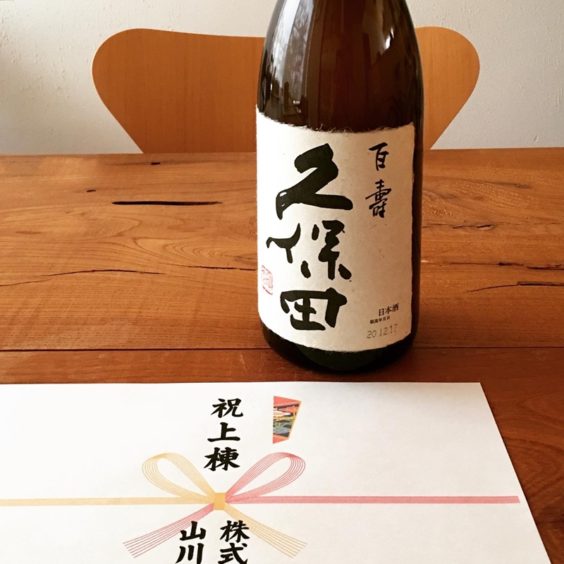 百壽
久保田
日本酒
20.12.17
祝上棟
株式
山川